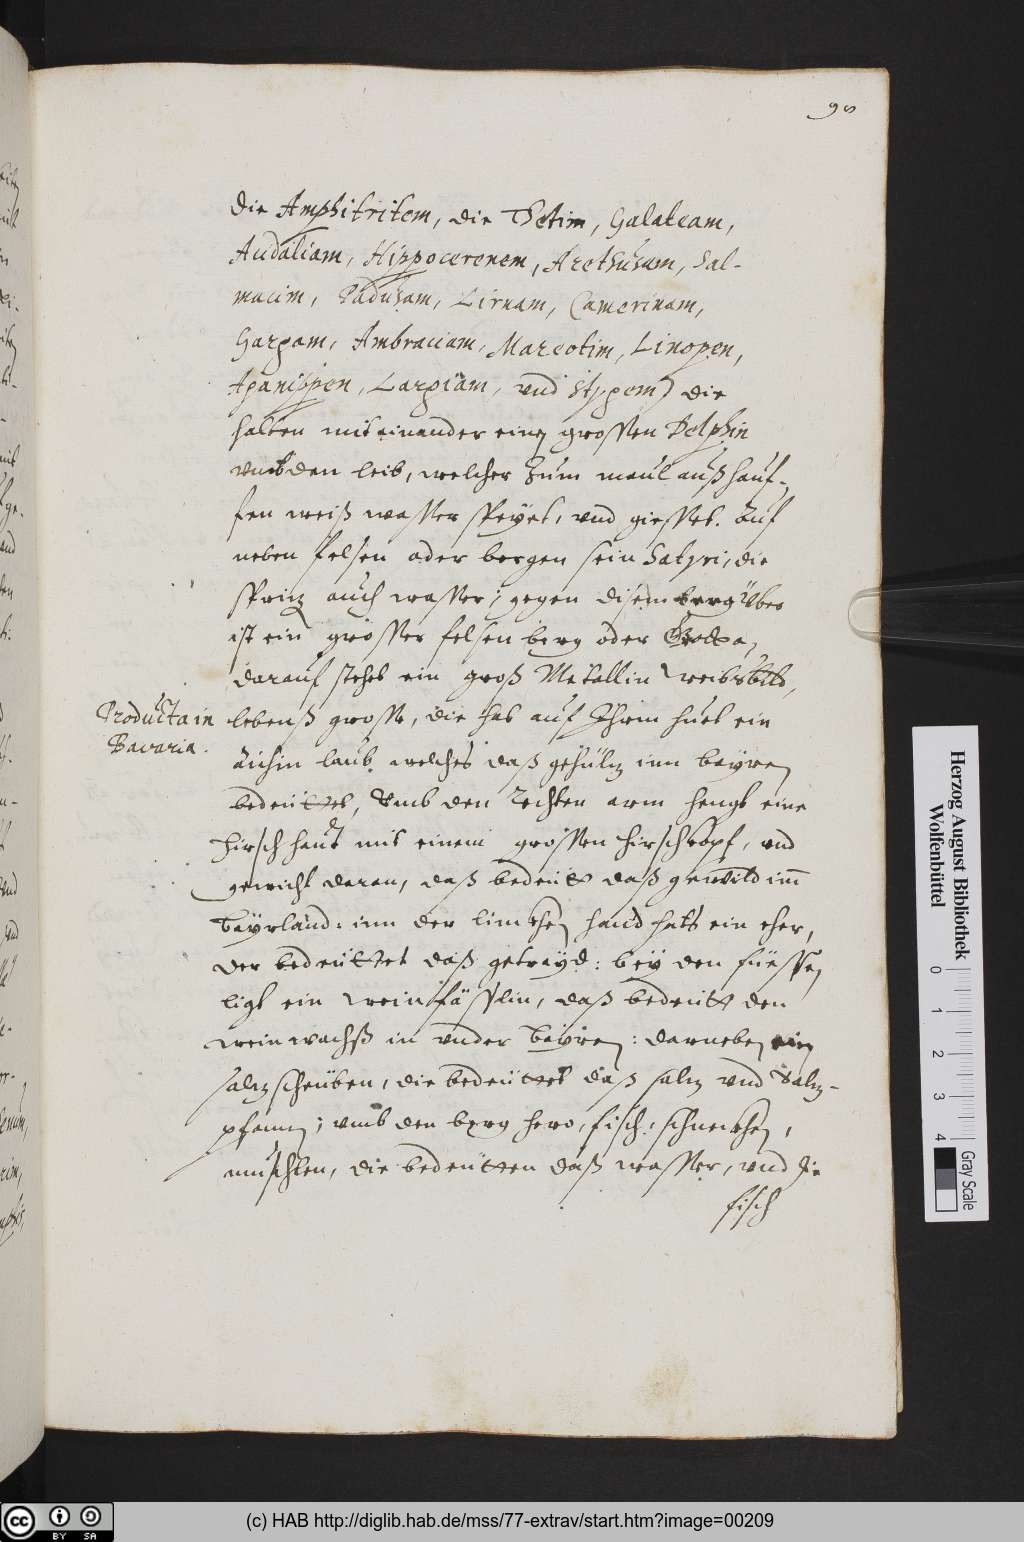 98
die Amphitritem, die Thetim, Galateam,
Audaliam, Hippocerenem, Arethusam, Sal-
macim, Padusam, Lirnam, Camerinam,
Gargam, Ambraciam, Mareotim, Linopen,
Aganippen, Largiam, vnd Stygem) die
halten mit einander einen grossen Delphin
vmb den leib, welcher zum maul auß hauf-
fen weiß wasser speyet, vnd giesset. Auf
neben felsen oder bergen sein Satyri, die
sprizen auch wasser; gegen disem berg über
ist ein grosser felsen berg oder Grotta,
darauf stehet ein groß Metallin weibsbild,
Producta in
Bavaria.
lebenß grosse, die hat auf Ihrem huet ein
Aichin laub, welches daß gehülz inn bayren
bedeuttet, Vmb den Rechten arm hengt eine
hirsch haut mit einem grossen hirschkopf, vnd
gewicht daran, daß bedeutt daß gewild im
bayrland: inn der lincken hand hats ein eher,
der bedeuttet daß getrayd: bey den füessen
ligt ein weinfässlin, daß bedeutt den
weinwachß in vnder bayren: darneben ein
salzscheüben, die bedeuttet daß salz vnd Salz-
pfannen; vmb den berg hero, fisch, schnecken,
muschlen, die bedeutten daß wasser, vnd die
fisch
Herzog August Bibliothek
Wolfenbüttel
0 1 2 3 4
Gray Scale
cc BY SA
(c) HAB http://diglib.hab.de/mss/77-extrav/start.htm?image=00209